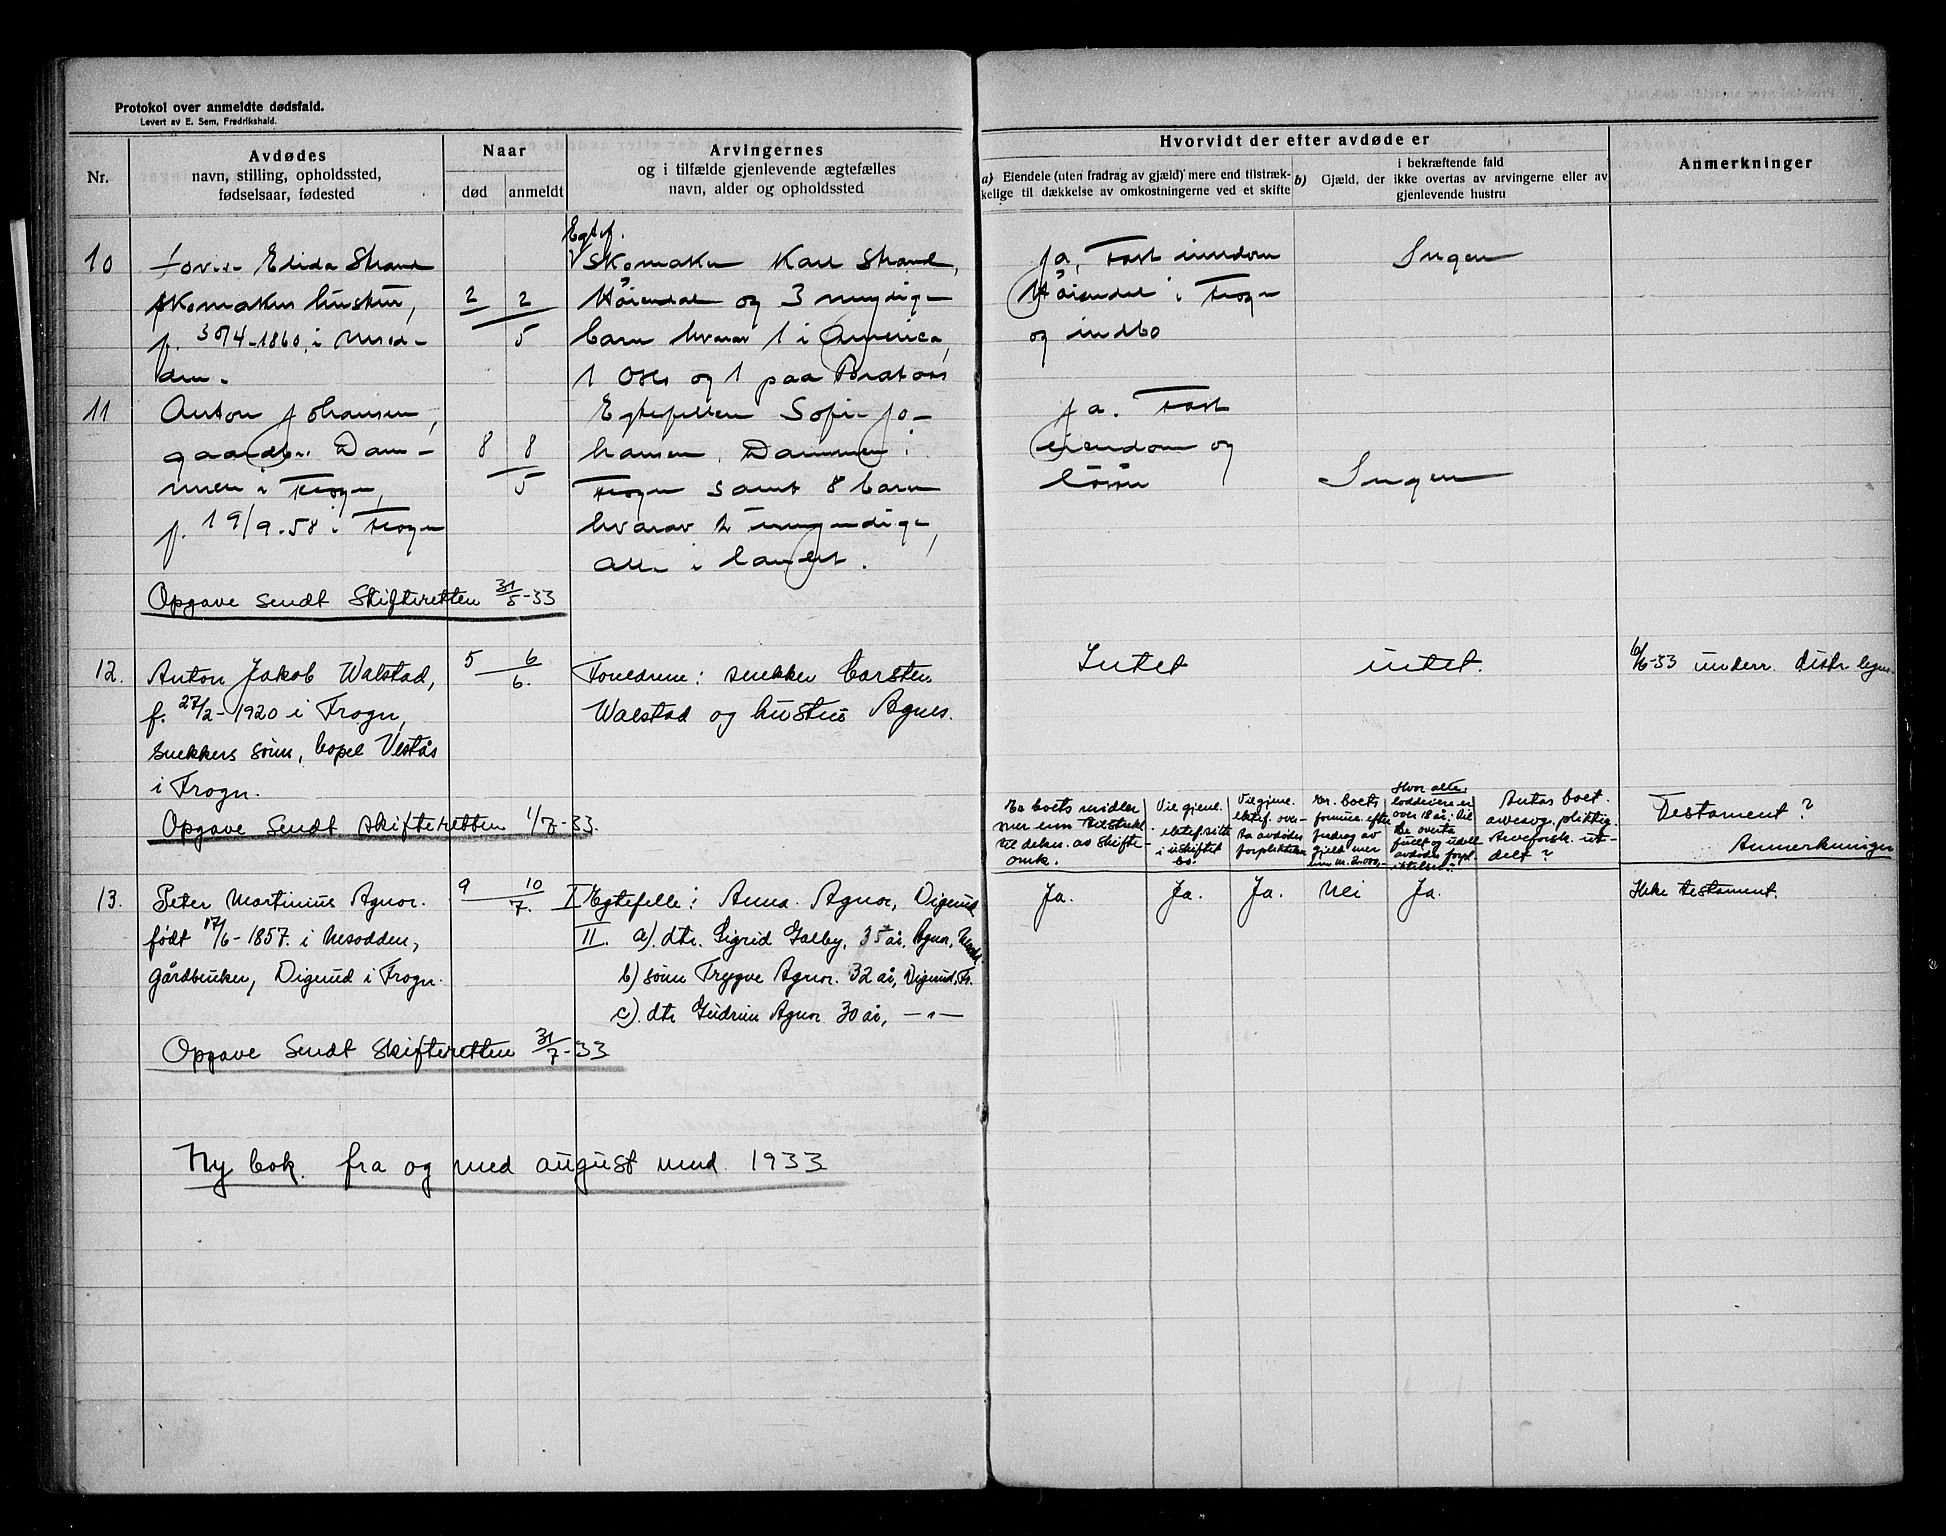 Protokol over anmeldte dødsfald.
Levert av E. Sem, Fredrikshald.
Nr.
Avdødes
navn, stilling, opholdssted,
fødselsaar, fødested
Naar
død
anmeldt
Arvingernes
og i tilfælde gjenlevende ægtefælles
navn, alder og opholdssted
Hvorvidt der efter avdøde er
a) Eiendele (uten fradrag av gjæld) mere end tilstræk-
kelige til dækkelse av omkostningerne ved et skifte
b) Gjæld, der i bekræftende fald
ikke overtas av arvingerne eller av
gjenlevende hustru
Anmerkninger
10
Elida Strand
skomakers hustru,
f. 30/4-1860, i Nesod-
den.
2 2/5
Egtef.
Skomaker Karl Strand,
Høiendal og 3 myndige
barn hvorav 1 i America,
1 Oslo og 1 paa
Ja, Fast eiendom
Høiendal i Frogn
og indbo
Ingen
11
Anton Johansen,
gaardbr. Dam-
men i Frogn,
f. 19/9-58 i Frogn
8 8/5
Egtefellen Sofie Jo-
hansen, Dammen i
Frogn samt 8 barn
hvorav 2 umyndige,
alle i landet.
Ja. Fast
eiendom og
løsøre
Ingen
Opgave sendt Skifteretten 31/5-33
12.
Anton Jakob Walstad,
f. 27/2-1920 i Frogn,
snekkers sønn, bopel Vestås
i Frogn.
5 6/6.
Foreldrene: snekker Carsten
Walstad og hustru Agnes.
Intet
intet.
6/6-33 underr. distr. legen.
Opgave sendt skifteretten 1/7-33.
Er boets midler
mer enn tilstrekl.
til dekn. av skifte-
omk.
Vil gjenl.
ektef. sitte
i uskiftet
bo.
Vil gjenl.
ektef. over-
ta avdødes
forpliktelser
Er boets
formue efter
fradrag av
gjeld mer
enn kr. 2000,-
Hvor alle
loddeiere er
over 18 år: Vil
de overta
gjeld og
avdødes forpl-
iktelser?
Antas boet
arveavg. pliktig.
Arveforsk. ut-
delt?
Testament?
Anmerkninger
13.
Peter Martinius Agnor.
født 17/6-1857. i Nesodden,
gårdbruker, Digerud i Frogn.
9 10/7.
I Egtefelle: Anna Agnor, Digerud
II. a). dtr. Sigrid Galby, 35 år, Agnor, Nesod.
b) sønn Trygve Agnor. 32 år, Digerud, Fr.
c). dtr Gudrun Agnor 30 år, —"—
Ja.
Ja.
Ja.
Nei
Ja.
Ikke testament.
Opgave sendt skifteretten 31/7-33
Ny bok. fra og med august mnd. 1933